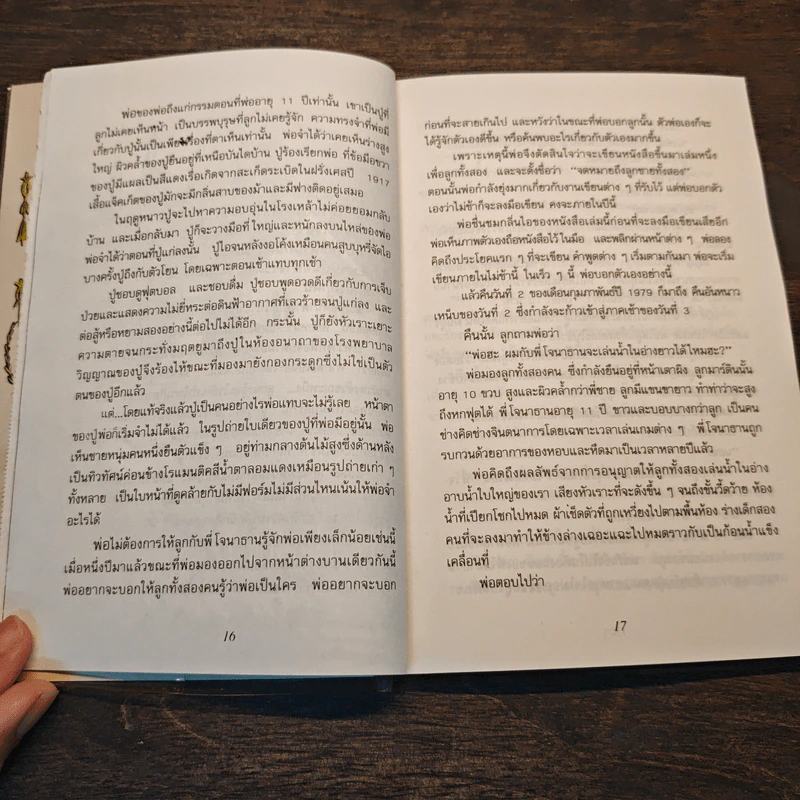 พ่อของพ่อถึงแก่กรรมตอนที่พ่ออายุ 11 ปีเท่านั้น เขาเป็นปู่ที่
ลูกไม่เคยเห็นหน้า เป็นบรรพบุรุษที่ลูกไม่เคยรู้จัก ความทรงจำที่พ่อมี
เกี่ยวกับปู่นั้นเป็นเพียงเรื่องที่ตาเห็นเท่านั้น พ่อจำได้ว่าเคยเห็นร่างสูง
ใหญ่ ผิวคล้ำของปู่ยืนอยู่ที่เหนือบันไดบ้าน ปู่ร้องเรียกพ่อ ที่ข้อมือขวา
ของปู่มีแผลเป็นสีแดงเรื่อเกิดจากสะเก็ดระเบิดในฝรั่งเศสปี 1917
เสื้อแจ็คเก็ตของปู่มักจะมีกลิ่นสาบของม้าและมีฟางติดอยู่เสมอ
ในฤดูหนาวปู่จะไปหาความอบอุ่นในโรงเหล้าไม่ค่อยยอมกลับ
บ้าน และเมื่อกลับมา ปู่ก็จะวางมือที่ใหญ่และหนักลงบนไหล่ของพ่อ
พ่อจำได้ว่าตอนที่ปู่แก่ลงนั้น ปู่ไอจนหลังงอโค้งเหมือนคนสูบบุหรี่จัดไอ
บางครั้งปู่ถึงกับตัวโยน โดยเฉพาะตอนเช้าแทบทุกเช้า
ปู่ชอบดูฟุตบอล และชอบดื่ม ปู่ชอบพูดอวดดีเกี่ยวกับการเจ็บ
ป่วยและแสดงความไม่ยี่หระต่อดินฟ้าอากาศที่เลวร้ายจนปู่แก่ลง และ
ต่อสู้หรือหยามสองอย่างนี้ต่อไปไม่ได้อีก กระนั้น ปู่ก็ยังหัวเราะเยาะ
ความตายจนกระทั่งมฤตยูมาถึงปู่ในห้องอนาถาของโรงพยาบาล
วิญญาณของปู่จึงร้องไห้ขณะที่มองมายังกองกระดูกซึ่งไม่ใช่เป็นตัว
ตนของปู่อีกแล้ว
แต่...โดยแท้จริงแล้วปู่เป็นคนอย่างไรพ่อแทบจะไม่รู้เลย หน้าตา
ของปู่พ่อก็เริ่มจำไม่ได้แล้ว ในรูปถ่ายใบเดียวของปู่ที่พ่อมีอยู่นั้น พ่อ
เห็นชายหนุ่มคนหนึ่งยืนตัวแข็ง ๆ อยู่ท่ามกลางต้นไม้สูงซึ่งด้านหลัง
เป็นทิวทัศน์ค่อนข้างโรแมนติคสีน้ำตาลอมแดงเหมือนรูปถ่ายเก่า ๆ
ทั้งหลาย เป็นใบหน้าที่ดูคล้ายกับไม่มีฟอร์มไม่มีส่วนไหนเน้นให้พ่อจำ
อะไรได้
พ่อไม่ต้องการให้ลูกกับพี่โจนาธานรู้จักพ่อเพียงเล็กน้อยเช่นนี้
เมื่อหนึ่งปีมาแล้วขณะที่พ่อมองออกไปจากหน้าต่างบานเดียวกันนี้
พ่ออยากจะบอกให้ลูกทั้งสองคนรู้ว่าพ่อเป็นใคร พ่ออยากจะบอก
16
ก่อนที่จะสายเกินไป และหวังว่าในขณะที่พ่อบอกลูกนั้น ตัวพ่อเองก็จะ
ได้รู้จักตัวเองดีขึ้น หรือค้นพบอะไรเกี่ยวกับตัวเองมากขึ้น
เพราะเหตุนี้พ่อจึงตัดสินใจว่าจะเขียนหนังสือขึ้นมาเล่มหนึ่ง
เพื่อลูกทั้งสอง และจะตั้งชื่อว่า “จดหมายถึงลูกชายทั้งสอง”
ตอนนั้นพ่อกำลังยุ่งมากเกี่ยวกับงานเขียนต่าง ๆ ที่รับไว้ แต่พ่อบอกตัว
เองว่าไม่ช้าก็จะลงมือเขียน คงจะภายในปีนี้
พ่อชื่นชมกลิ่นไอของหนังสือเล่มนี้ก่อนที่จะลงมือเขียนเสียอีก
พ่อเห็นภาพตัวเองถือหนังสือไว้ในมือ และพลิกผ่านหน้าต่าง ๆ พ่อลอง
คิดถึงประโยคแรก ๆ ที่จะเขียน คำพูดต่าง ๆ เริ่มตามกันมา พ่อจะเริ่ม
เขียนภายในไม่ช้านี้ ในเร็ว ๆ นี้ พ่อบอกตัวเองอย่างนี้
แล้วคืนวันที่ 2 ของเดือนกุมภาพันธ์ปี 1979 ก็มาถึง คืนอันหนาว
เหน็บของวันที่ 2 ซึ่งกำลังจะก้าวเข้าสู่ภาคเช้าของวันที่ 3
คืนนั้น ลูกถามพ่อว่า
“พ่อฮะ ผมกับพี่โจนาธานจะเล่นน้ำในอ่างยาวได้ไหมฮะ?”
พ่อมองลูกทั้งสองคน ซึ่งกำลังยืนอยู่ที่หน้าเตาผิง ลูกมาร์ตินนั้น
อายุ 10 ขวบ สูงและผิวคล้ำกว่าพี่ชาย ลูกมีแขนขายาว ทำท่าว่าจะสูง
ถึงหกฟุตได้ พี่โจนาธานอายุ 11 ปี ขาวและบอบบางกว่าลูก เป็นคน
ช่างคิดช่างจินตนาการโดยเฉพาะเวลาเล่นเกมต่าง ๆ พี่โจนาธานถูก
รบกวนด้วยอาการของหอบและหืดมาเป็นเวลาหลายปีแล้ว
พ่อคิดถึงผลลัพธ์จากการอนุญาตให้ลูกทั้งสองเล่นน้ำในอ่าง
อาบน้ำใบใหญ่ของเรา เสียงหัวเราะที่จะดังขึ้น ๆ จนถึงขั้นวี้ดว้าย ห้อง
น้ำที่เปียกโชกไปหมด ผ้าเช็ดตัวที่ถูกเหวี่ยงไปตามพื้นห้อง ร่างเด็กสอง
คนที่จะลงมาทำให้ข้างล่างเฉอะแฉะไปหมดราวกับเป็นก้อนน้ำแข็ง
เคลื่อนที่
พ่อตอบไปว่า
17